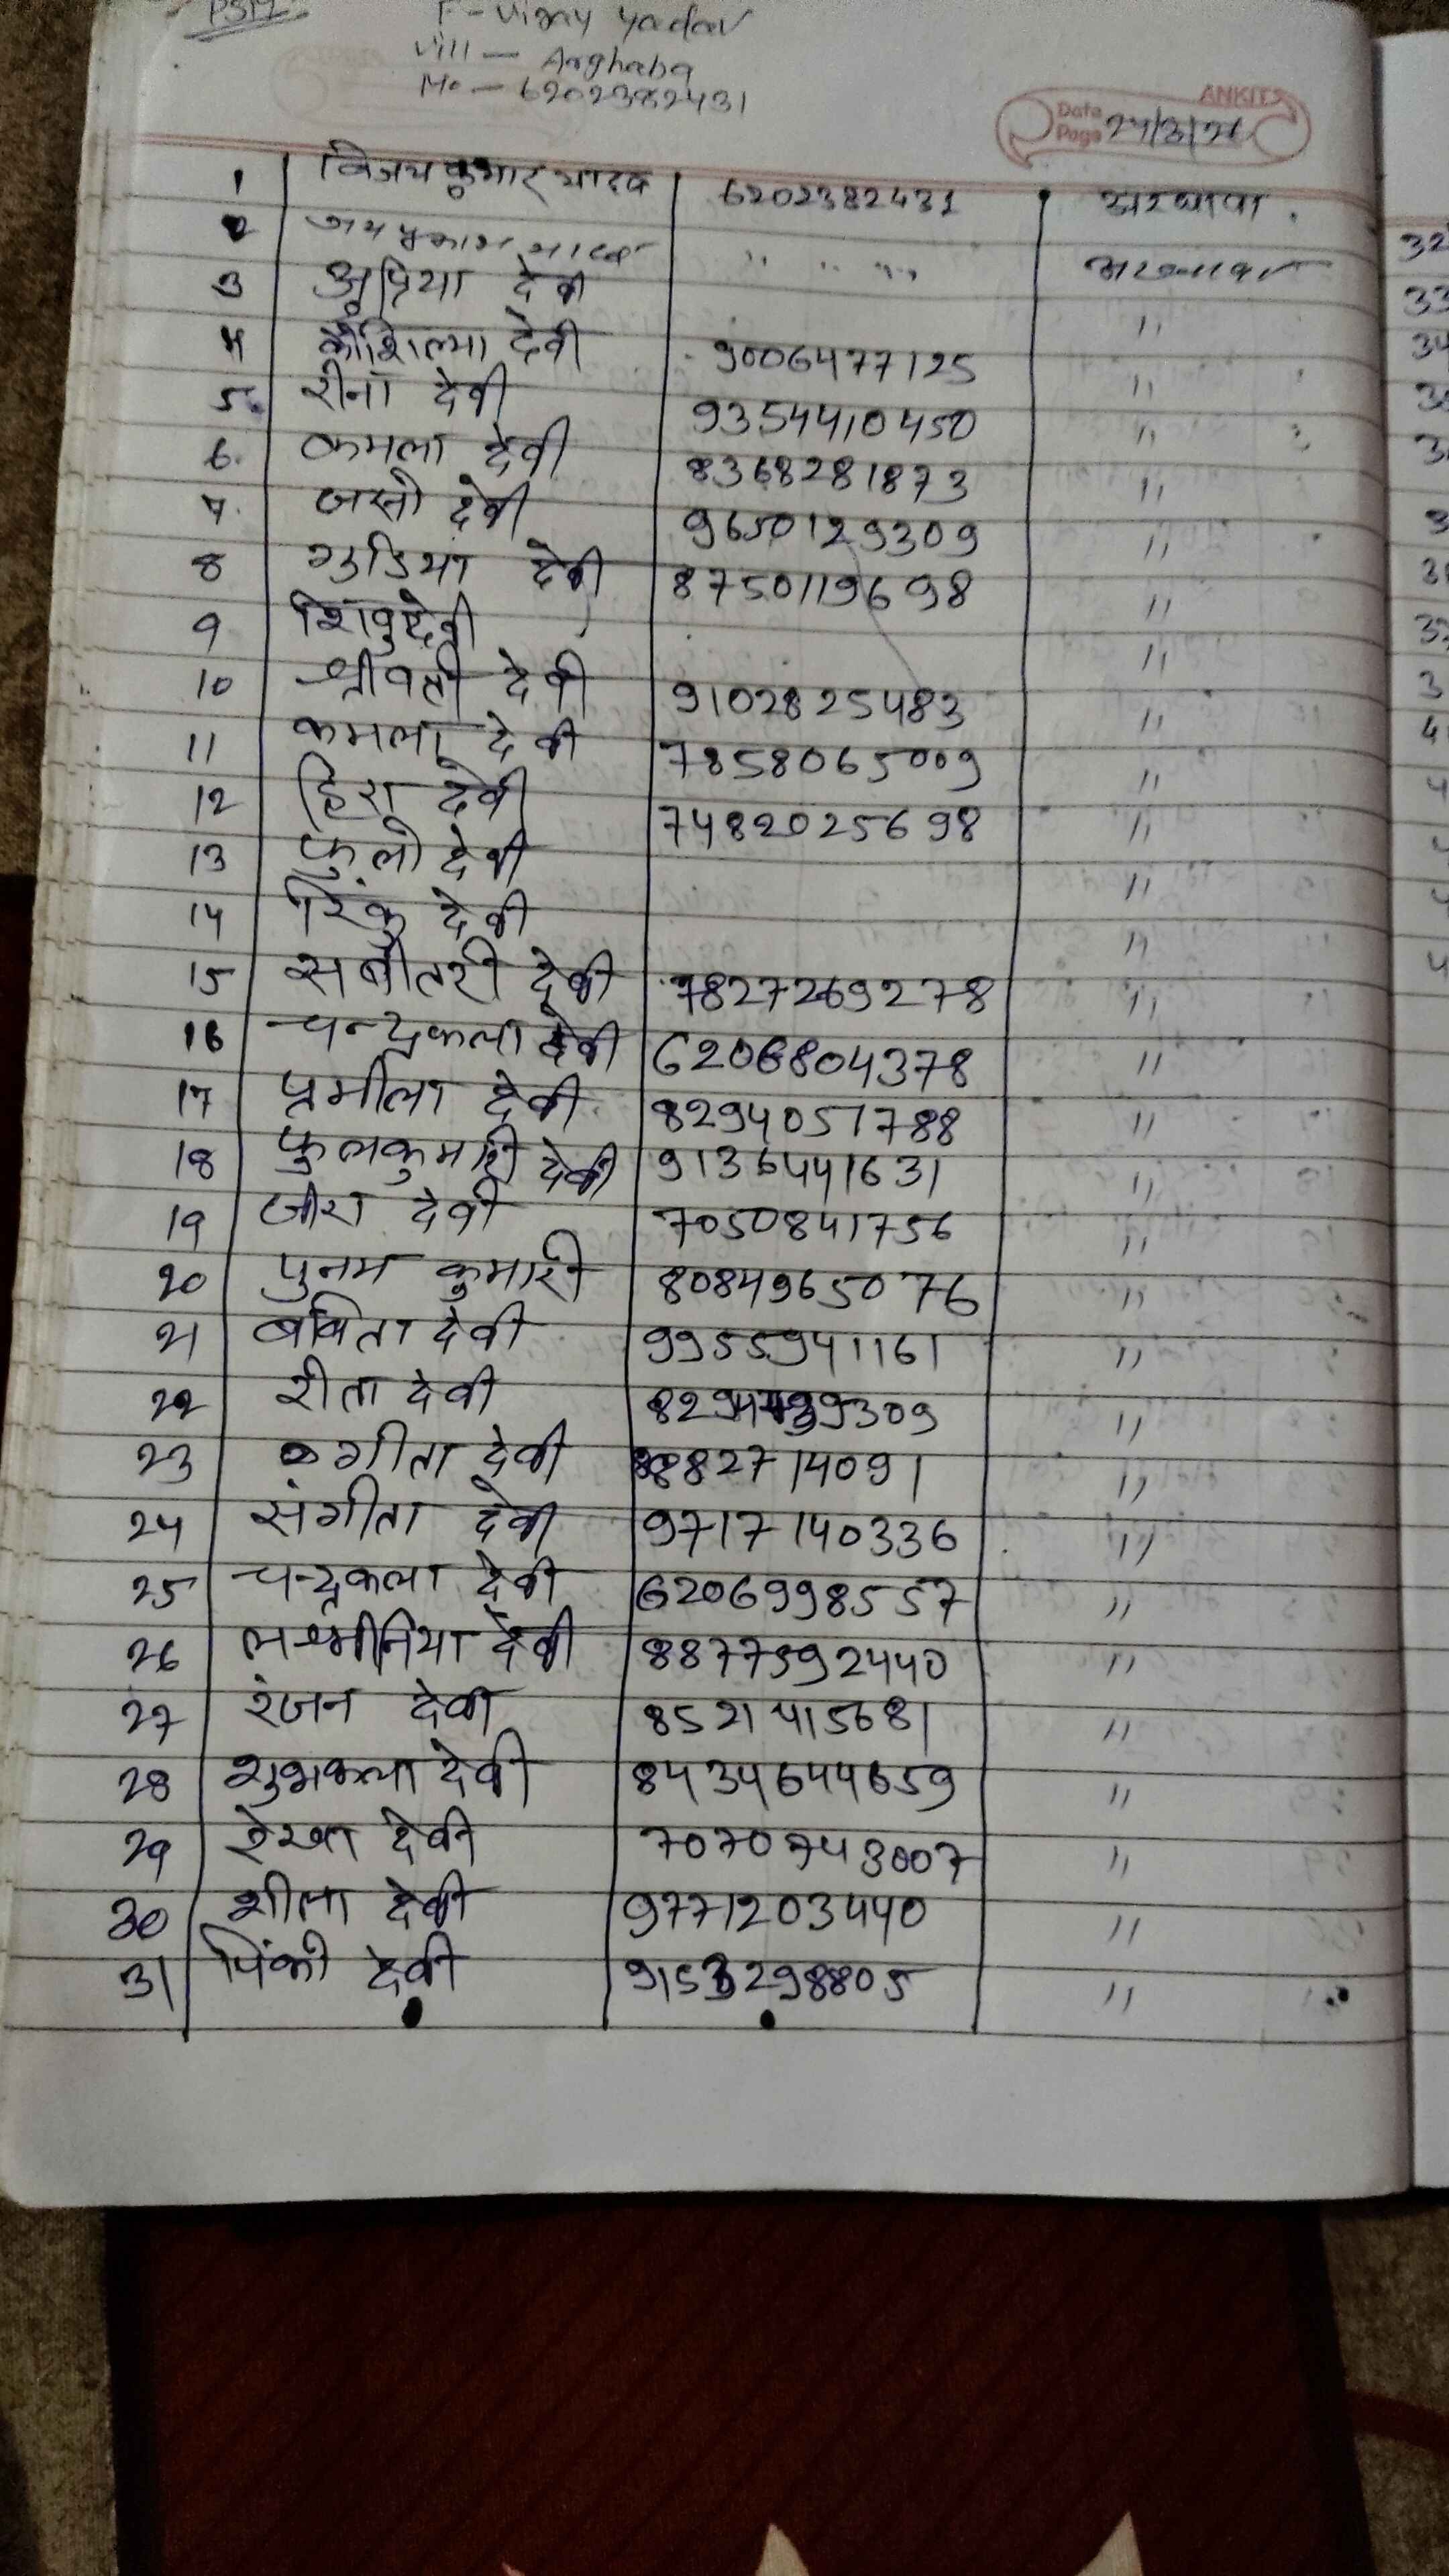 PSM
F - Vijay Yadav
Vill - Arghaba
Mo - 6202382431
ANKIT
Date
Page 24/3/26
1 विजय कुमार यादव 6202382431 अरघावा
2 जय प्रकाश यादव " " "
3 सुप्रिया देवी "
4 कौशिल्या देवी 9006477125 "
5. रीना देवी 9354410450 "
6. कमला देवी 8368281873 "
7. जसो देवी 9650129309 "
8 गुडिया देवी 8750119698 "
9 शिवु देवी "
10 श्रीवती देवी 9102825483 "
11 कमला देवी 7858065009 "
12 हिरा देवी 7482025698 "
13 फुलो देवी "
14 रिंकु देवी "
15 सबीतरी देवी 7827269278 "
16 चन्द्रकला देवी 6206804378 "
17 प्रमीला देवी 8294051788 "
18 फुलकुमारी देवी 9136441631 "
19 जीरा देवी 7050841756 "
20 पुनम कुमारी 8084965076 "
21 बबिता देवी 9955941161 "
22 रीता देवी "
23 गीता देवी 8882714091 "
24 संगीता देवी 9717140336 "
25 चन्द्रकला देवी 6206998557 "
26 लक्ष्मीनिया देवी 8877592440 "
27 रंजन देवी 8521415681 "
28 शुभकला देवी 8434644659 "
29 रेखा देवी 7070743007 "
30 शीला देवी 9771203440 "
31 पिंकी देवी 9153298805 "
32
33
34